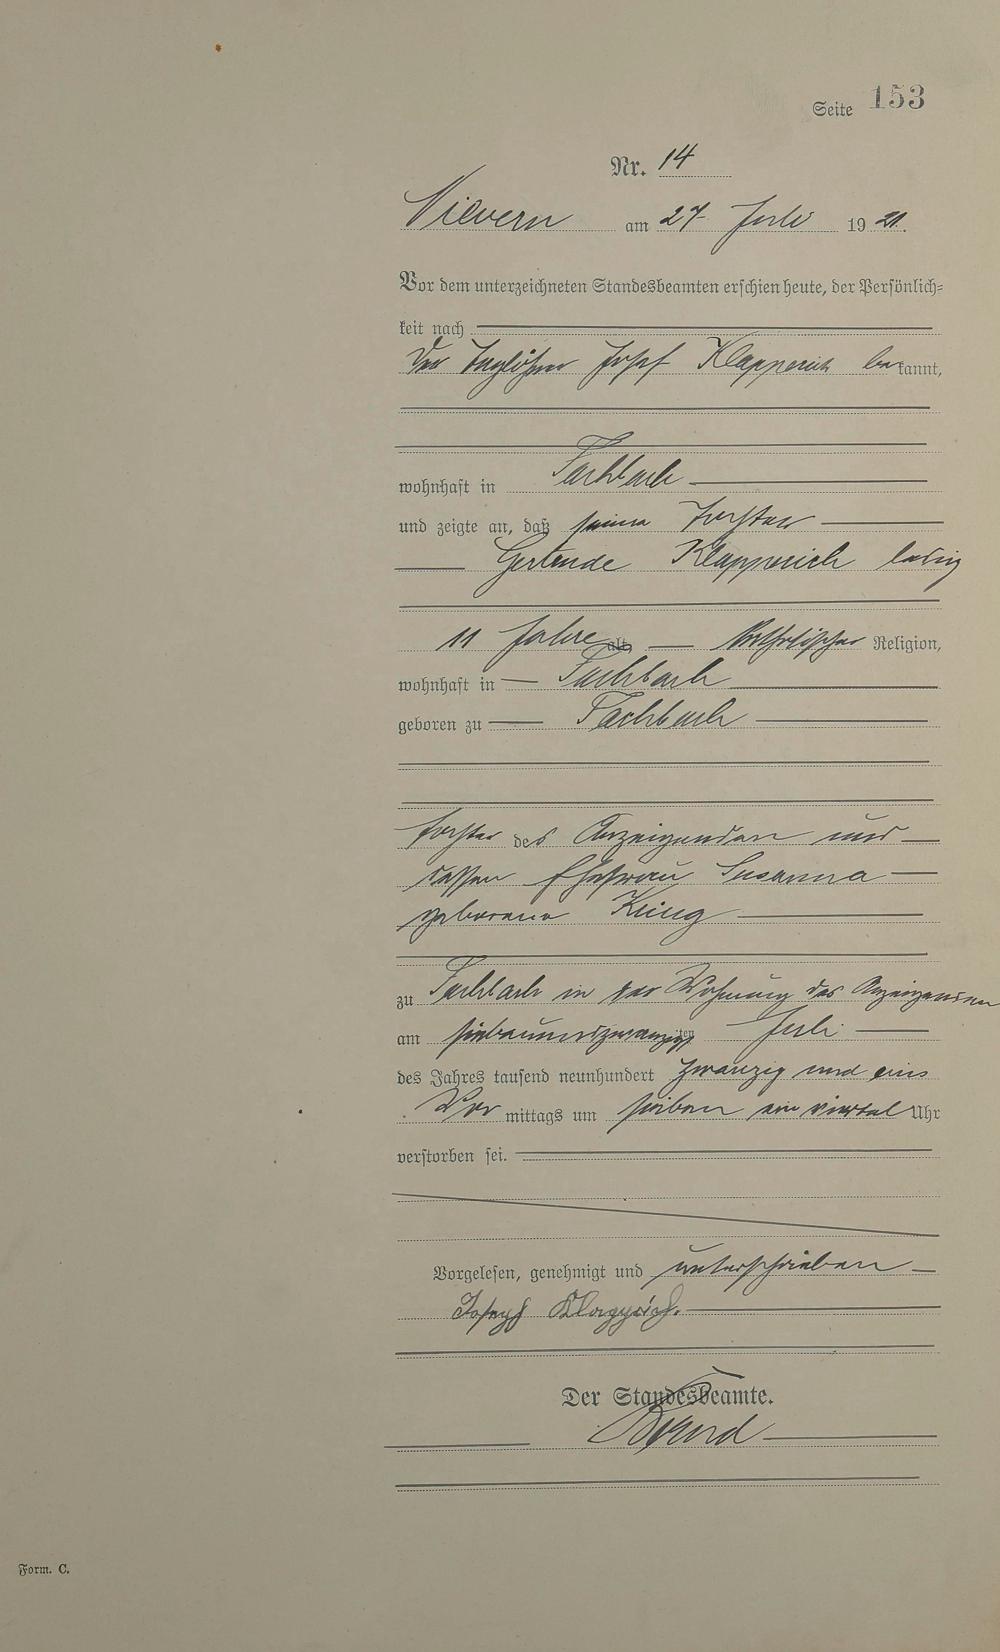 Seite 153
Nr. 14
Nievern am 27. Juli 19 21.
Vor dem unterzeichneten Standesbeamten erschien heute, der Persönlich=
keit nach
Der Taglöhner Josef Klapperich bekannt,
wohnhaft in Fachbach
und zeigte an, daß seine Tochter
Gertrude Klapperich ledig
11 Jahre alt, katholischer Religion,
wohnhaft in Fachbach
geboren zu Fachbach
Tochter des Anzeigenden und
dessen Ehefrau Susanna
geborene
zu Fachbach in der Wohnung des Anzeigenden
am siebenundzwanzigsten Juli
des Jahres tausend neunhundert zwanzig und eins
Vor mittags um sieben ein viertel Uhr
verstorben sei.
Vorgelesen, genehmigt und unterschrieben
Joseph Klapperich.
Der Standesbeamte.
Form. C.